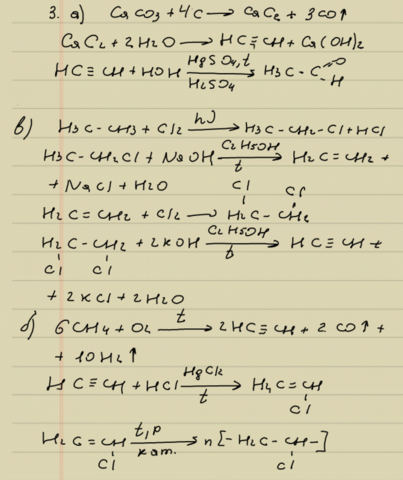 3. а) CaCO3 + 4C → CaC2 + 3CO↑
CaC2 + 2H2O → HC≡CH + Ca(OH)2
HC≡CH + HOH HgSO4, t → H2SO4 H3C-C=O -H
в) H3C-CH3 + Cl2 hν → H3C-CH2-Cl + HCl
H3C-CH2Cl + NaOH C2H5OH → t H2C=CH2 +
+ NaCl + H2O Cl Cl
H2C=CH2 + Cl2 → H2C-CH2
H2C-CH2 + 2KOH C2H5OH → t HC≡CH +
Cl Cl
+ 2KCl + 2H2O
б) 6CH4 + O2 t → 2HC≡CH + 2CO↑ +
+ 10H2↑
HC≡CH + HCl HgCl2 → t H2C=CH
Cl
H2C=CH t, p → кат. n[-H2C-CH-]
Cl Cl